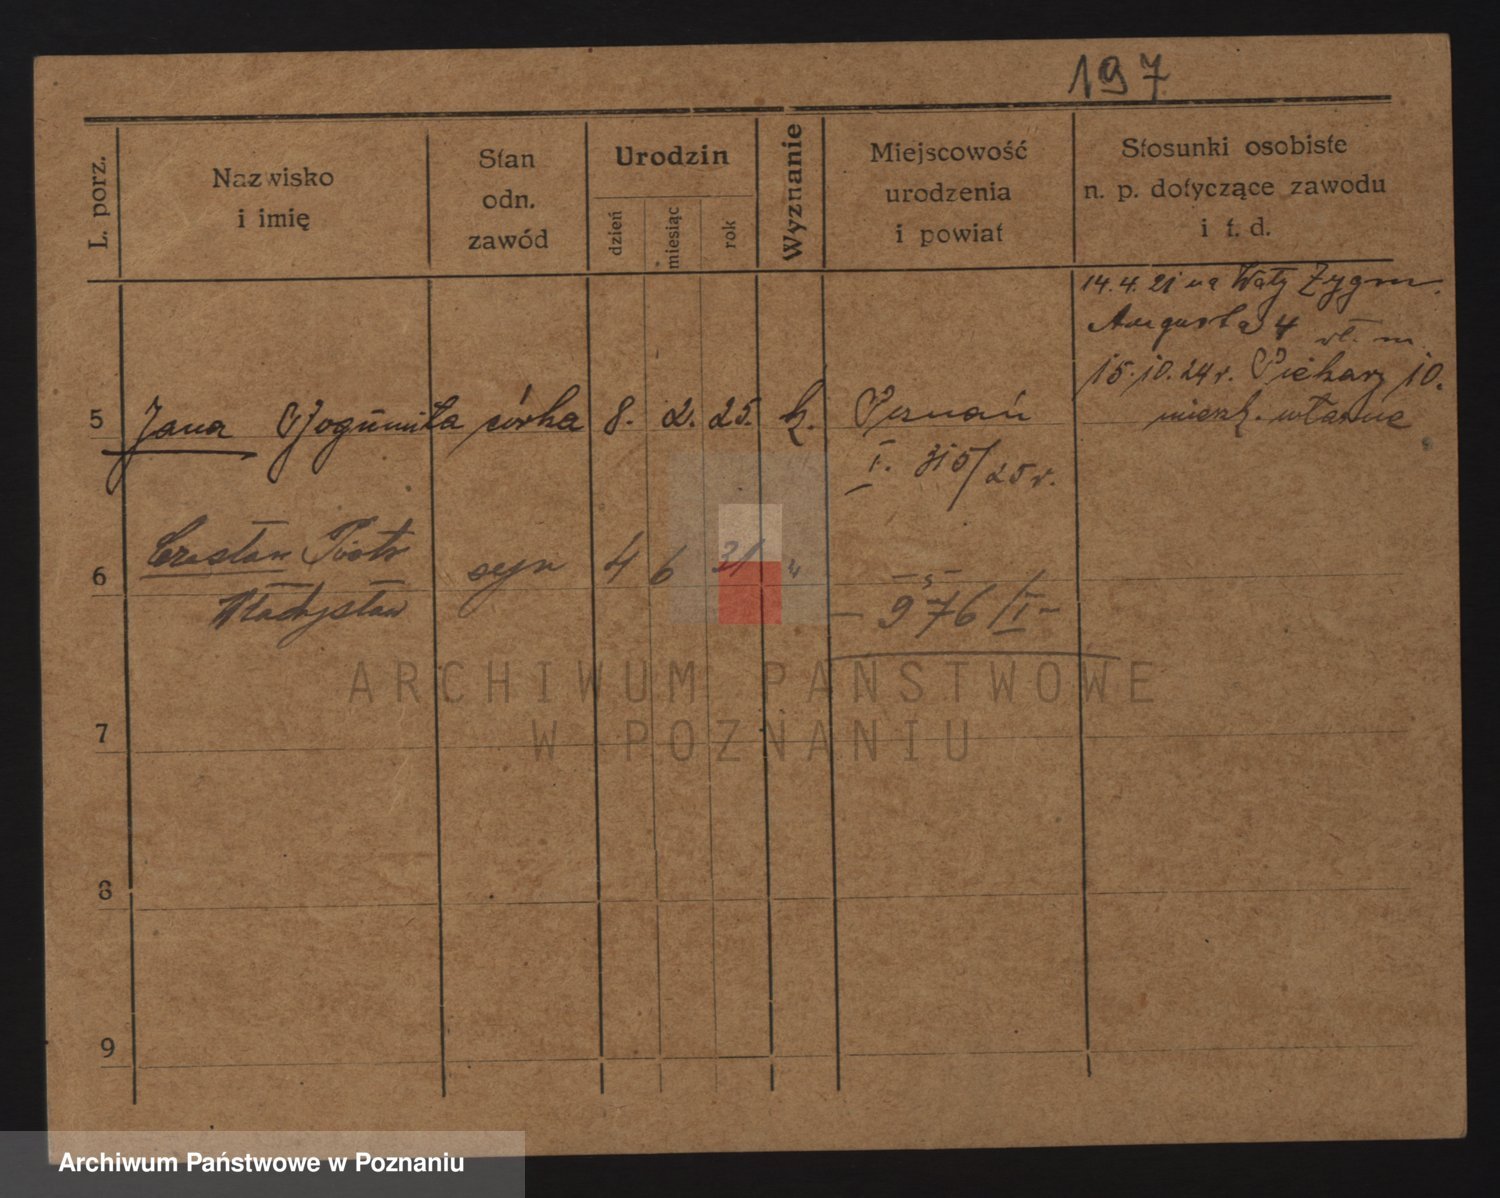 197
L. porz.
Nazwisko
i imię
Stan
odn.
zawód
Urodzin
dzień
miesiąc
rok
Wyznanie
Miejscowość
urodzenia
i powiat
Stosunki osobiste
n. p. dotyczące zawodu
i t. d.
14.4.21 na Wały Zygm.
Augusta 4 wł. m.
15.10.24 r. Piekary 10.
mieszk. własne
5 Jana Bogumiła córka 8. 2. 25. k. Poznań
I. 315/25 r.
6 Czesław Piotr syn 4 6 31 "
Władysław
- 976/I -
7
8
9
ARCHIWUM PAŃSTWOWE
W POZNANIU
Archiwum Państwowe w Poznaniu